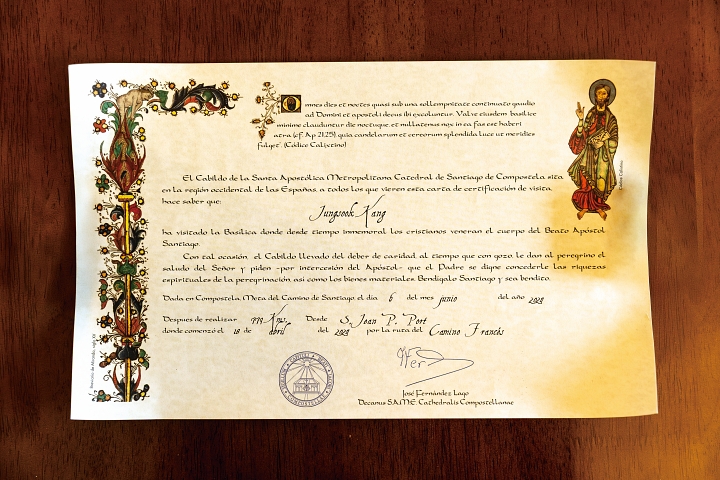 Omnes dies et noctes quasi sub una sollempnitate continuato gaudio
ad Domini et apostoli decus ibi excoluntur. Valve eiusdem basilice
minime clauduntur die noctuque, et nullatenus nox in ea fas est haberi
atra (cf. Ap 21,25), quia candelarum et cereorum splendida luce ut meridies
fulget". (Códice Calixtino)
El Cabildo de la Santa Apostólica Metropolitana Catedral de Santiago de Compostela sita
en la región occidental de las Españas, a todos los que vieren esta carta de certificación de visita,
hace saber que:
Jungsook Kang
ha visitado la Basílica donde desde tiempo inmemorial los cristianos veneran el cuerpo del Beato Apóstol
Santiago.
Con tal ocasión, el Cabildo llevado del deber de caridad, al tiempo que con gozo, le dan al peregrino el
saludo del Señor y piden -por intercesión del Apóstol- que el Padre se digne concederle las riquezas
espirituales de la peregrinación, así como los bienes materiales. Bendígalo Santiago y sea bendito.
Dada en Compostela, Meta del Camino de Santiago, el día 6 del mes junio del año
Despues de realizar Kms. Desde S. Jean P. Port
donde comenzó el 18 de abril del por la ruta del Camino Francés
José Fernández Lago
Decanus S.A.M.E. Cathedralis Compostellanae